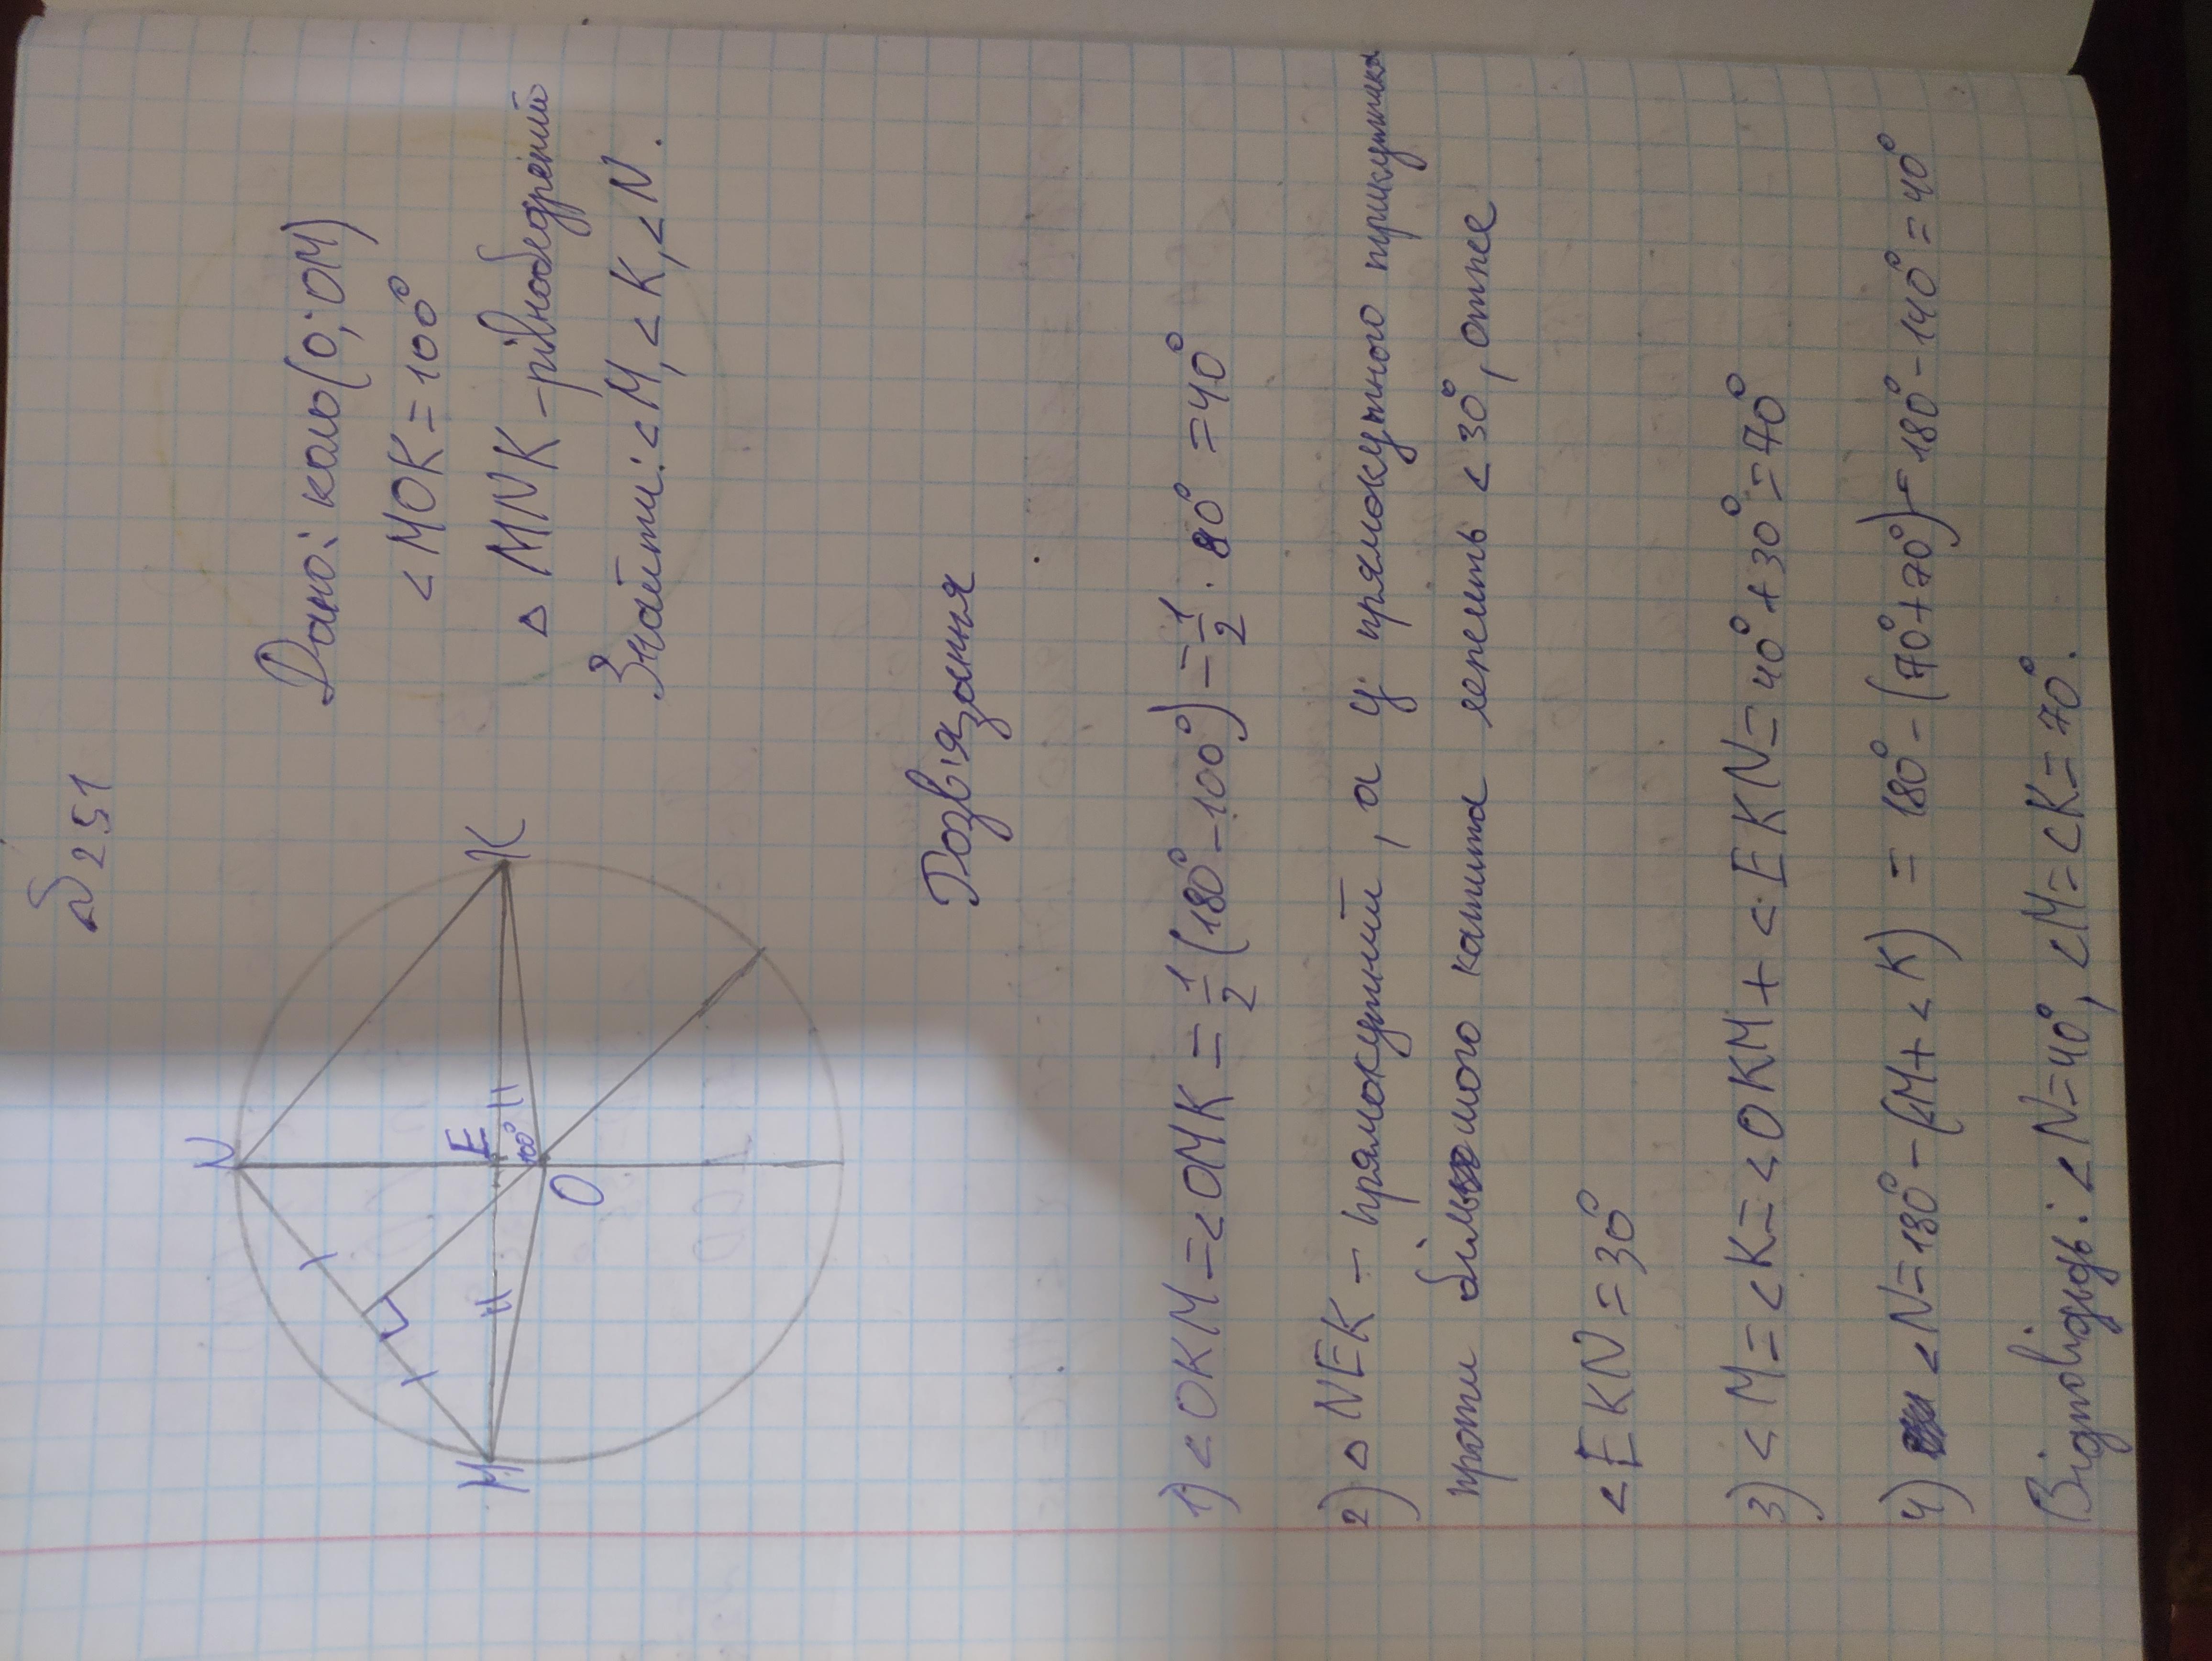 № 251
N
M
K
E
100°
O
Дано: коло(О; ОМ)
< МОК = 100°
△ MNK - рівнобедрений
Знайти: < М, < К, < N.
Розв'язання
1) < OKM = < OMK = 1/2 (180° - 100°) = 1/2 · 80° = 40°
2) △ NEK - прямокутний, а у прямокутного трикутника
проти більшого катита лежить < 30°, отже
< EKN = 30°
3) < M = < K = < OKM + < EKN = 40° + 30° = 70°
4) < N = 180° - (< M + < K) = 180° - (70° + 70°) = 180° - 140° = 40°
Відповідь: < N = 40°, < M = < K = 70°.